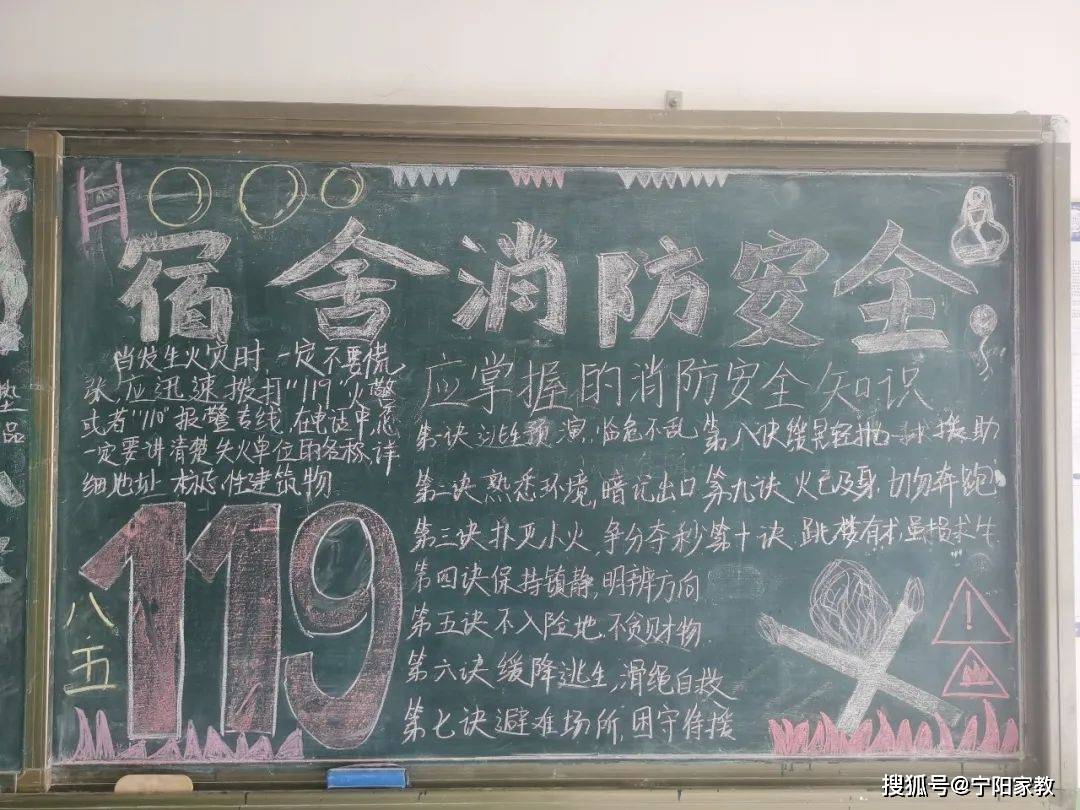 宿舍消防安全
当发生火灾时，一定不要慌
张，应迅速拨打"119"火警
或者"110"报警专线，在电话中您
一定要讲清楚失火单位的名称、详
细地址、标志性建筑物
119
八.五
应掌握的消防安全知识
第一诀 逃生预演，临危不乱
第二诀 熟悉环境，暗记出口
第三诀 扑灭小火，争分夺秒
第四诀 保持镇静，明辨方向
第五诀 不入险地，不贪财物
第六诀 缓降逃生，滑绳自救
第七诀 避难场所，困守待援
第八诀 缓晃轻抛 援助
第九诀 火已及身，切勿奔跑
第十诀 跳楼有术，虽损求生
品
搜狐号@宁阳家教